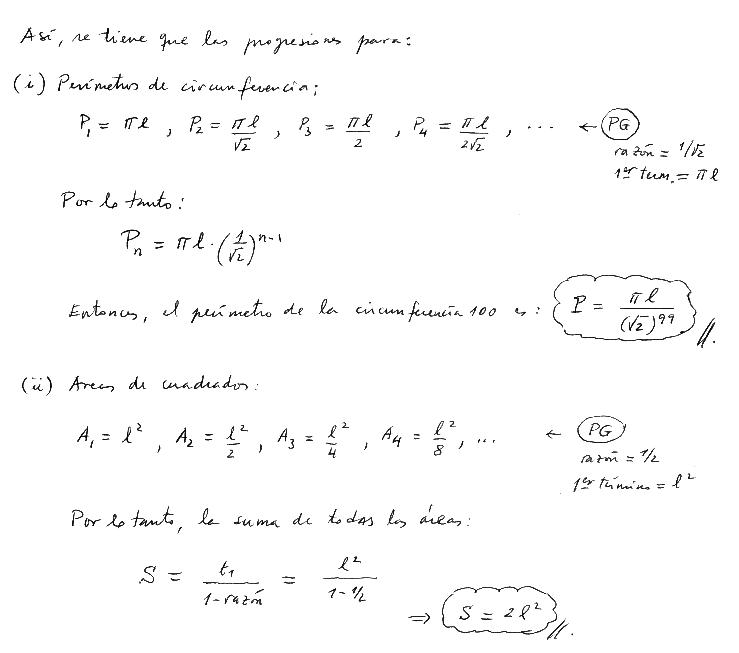 Así, se tiene que las progresiones para:
(i) Perímetros de circunferencia;
P₁ = πl , P₂ = πl/√2 , P₃ = πl/2 , P₄ = πl/2√2 , ... ← PG
razón = 1/√2
1er term. = πl
Por lo tanto:
Pₙ = πl·(1/√2)ⁿ⁻¹
Entonces, el perímetro de la circunferencia 100 es: P = πl/(√2)⁹⁹ //.
(ii) Areas de cuadrados:
A₁ = l² , A₂ = l²/2 , A₃ = l²/4 , A₄ = l²/8 , ... ← PG
razón = 1/2
1er término = l²
Por lo tanto, la suma de todas las áreas:
S = t₁/(1-razón) = l²/(1-1/2)
⇒ S = 2l² //.